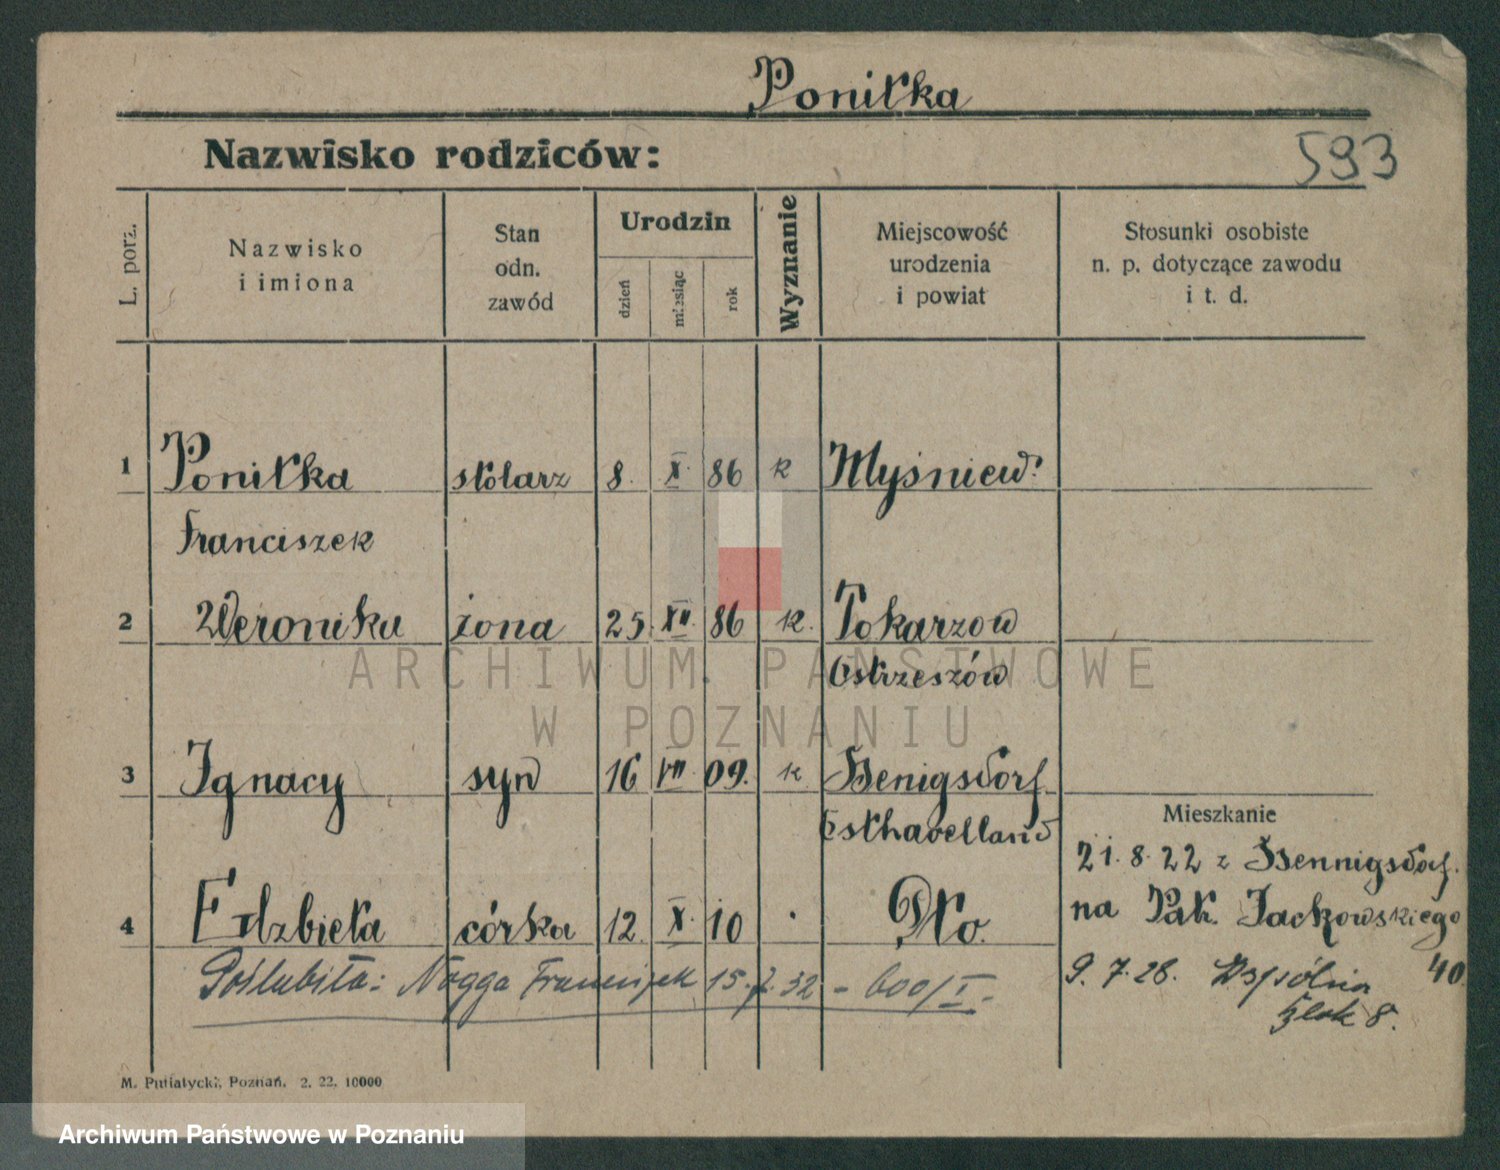 Ponitka
Nazwisko rodziców:
593
L. porz.
Nazwisko
i imiona
Stan
odn.
zawód
Urodzin
dzień
miesiąc
rok
Wyznanie
Miejscowość
urodzenia
i powiat
Stosunki osobiste
n. p. dotyczące zawodu
i t. d.
1 Ponitka stolarz 8. X. 86 k Myśniew
Franciszek
2 Weronika żona 25. XII 86 k. Tokarzow
Ostrzeszów
ARCHIWUM PAŃSTWOWE
W POZNANIU
3 Ignacy syn 16 VII 09. k Henigsdorf
Osthavelland
Mieszkanie
21. 8. 22 z Hennigsdorf.
4 Elzbieta córka 12 X. 10 Dto.
na Patr. Jackowskiego
40
Poślubiła: Nogga Franciszek 15. 7. 32 - 600/I.
9. 7. 28. Wspólna
blok 8.
M. Putiatycki, Poznań. 2. 22. 10000
Archiwum Państwowe w Poznaniu